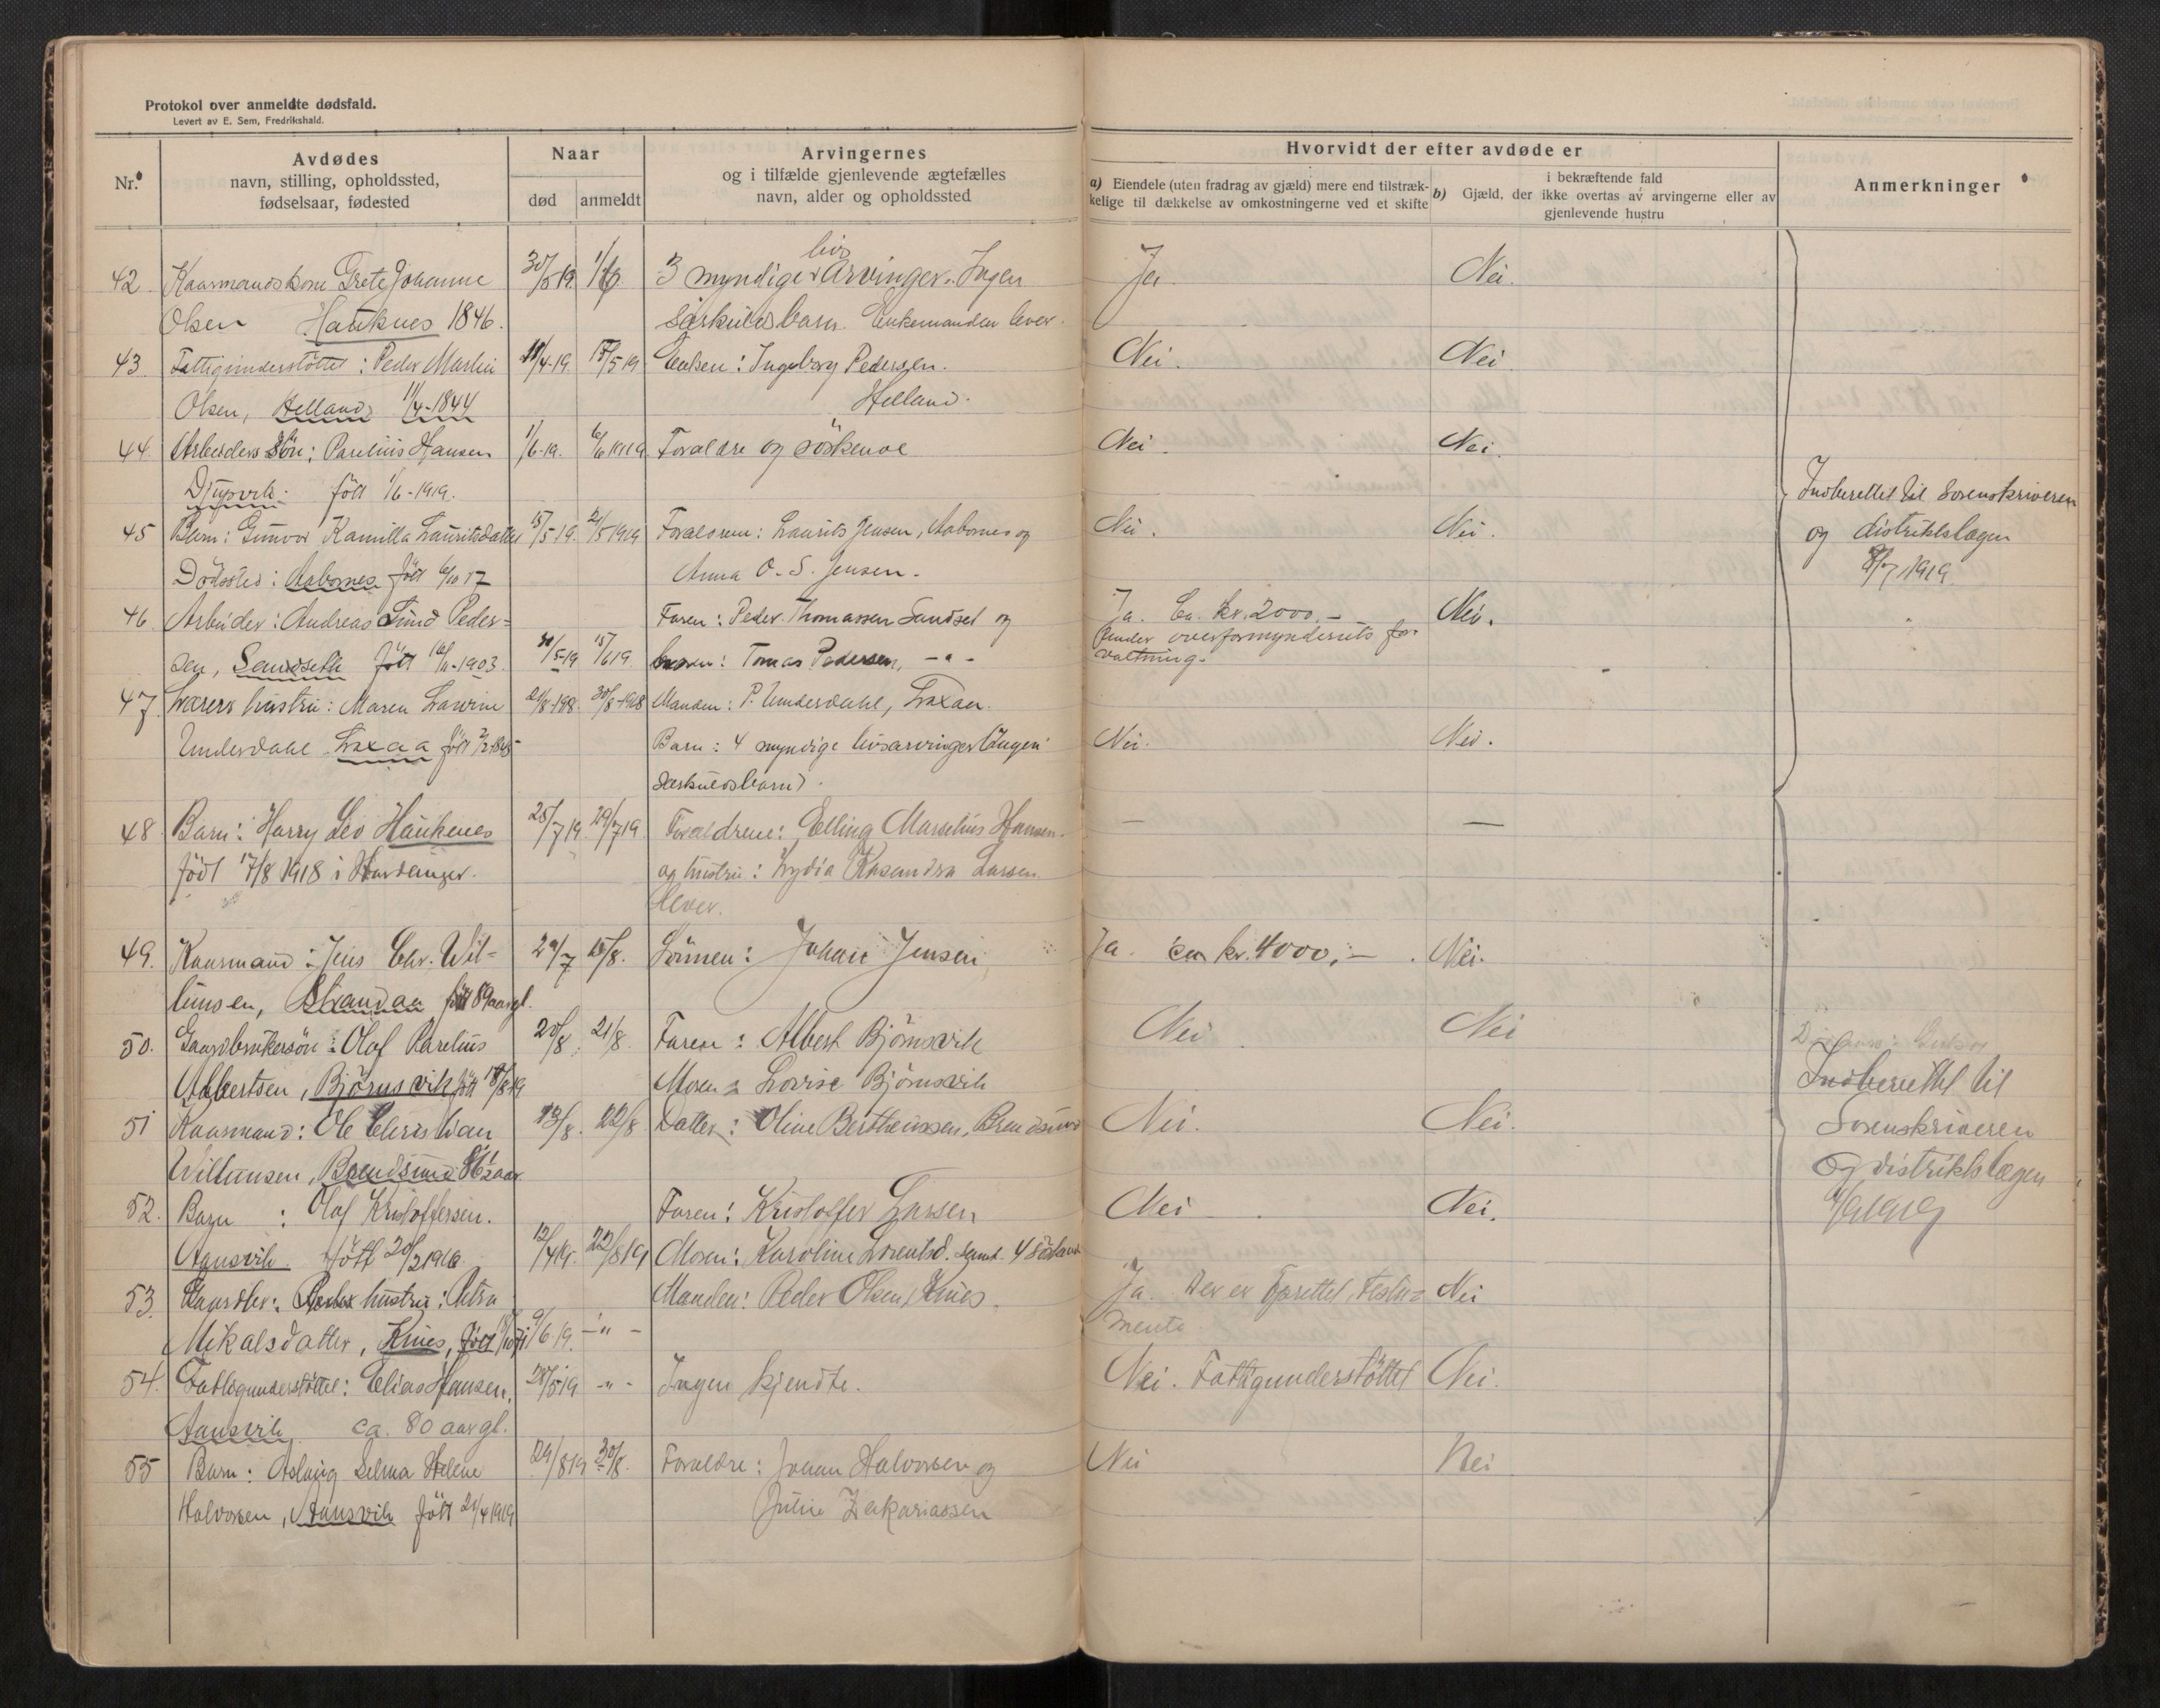 Protokol over anmeldte dødsfald.
Levert av E. Sem, Fredrikshald.
Nr.
Avdødes
navn, stilling, opholdssted,
fødselsaar, fødested
Naar
død
anmeldt
Arvingernes
og i tilfælde gjenlevende ægtefælles
navn, alder og opholdssted
Hvorvidt der efter avdøde er
a) Eiendele (uten fradrag av gjæld) mere end tilstræk-
kelige til dækkelse av omkostningerne ved et skifte
b) Gjæld, der i bekræftende fald
ikke overtas av arvingerne eller av
gjenlevende hustru
Anmerkninger
42. Kaarmandskone Grete Johanne 30/5 19. 1/6 3 myndige livs Arvinger. Ingen Ja. Nei.
Olsen Hauknes 1846. særkuldsbarn. Enkemanden lever.
43 Fattigunderstöttet: Peder Martin /4-19. 15/5 19 Enken: Ingeborg Pedersen. Nei. Nei.
Olsen, Helland 11/4-1844 Helland.
44. Arbeiders Sön: Parelius Hansen 1/6-19. 6/6 1919 Forældre og söskende Nei. Nei.
Djupvik. född 1/6-1919.
Indberettet til Sorenskriveren
45 Barn: Gunvor Kamilla Lauritsdatter 15/5-19. 21/5 1919 Forældrene: Laurits Jensen, Aabornes og Nei. Nei.
og distriktslægen
Dödssted: Aabornes född 6/10 17 Anna O. S. Jensen.
8/7 1919
46. Arbeider: Andreas Lund Peder- Faren: Peder Thomassen Sandset og Ja. Ca. kr. 2000.- Nei.
sen, Sandseth född 16/11-1903. /5-19 15/6 19. broren: Tomas Pedersen, -"- Under overformynderiets for-
valtning.
47. Lærers hustru: Maren Lavrine 21/8-1918. 30/8-1918 Manden: P. Underdahl, Laxaa.
Underdahl Laxaa född Barn: 4 myndige livsarvinger (Ingen Nei. Nei.
særkuldsbarn).
48 Barn: Harry Leo Haukenes 25/7 19. 29/7 19 Forældrene: Elling Marselius Hansen. — —
född 17/8 1918 i Hardanger. og hustru: Lydia Kasandra Larsen
lever.
49. Kaarmand: Jens Chr. Wil- 29/7 18/8. Sönnen: Johan Jensen Ja. ca. kr. 4000,- . Nei.
lumsen, Strandaa född 89 aar gl.
50. Gaardbrukersön: Olaf Parelius 20/8. 21/8. Faren: Albert Björnsvik Nei Nei
Albertsen, Björnsvik född 18/8 19 Moren: Lovise Björnsvik
Indberettet til
51 Kaarmand: Ole Christian 13/8. 22/8 Datter: Oline Bertheussen, Brendsund Nei. Nei.
Sorenskriveren
Willumsen, Brendsund 86 1/2 aar
og distriktslægen
52. Barn: Olaf Kristoffersen. Faren: Kristoffer Larsen Nei Nei.
Aansvik född 20/2 1916. 12/4 19. 22/8 19 Moren: Karoline Lorentsd. samt 4 söskende
53. Gaardbr. hustru: Petra Manden: Peder Olsen, Knes. Ja. Der er oprettet testa- Nei
Mikalsdatter, Knes, född 9/6-19. -"- mente
54. Fattigunderstöttet: Elias Hansen, 28/5 19 -"- Ingen kjendte. Nei. Fattigunderstöttet Nei.
Aansvik ca. 80 aar gl.
55 Barn: Aslaug Selma Helene 24/8 19 30/8. Forældre: Johan Halvorsen og Nei Nei
Halvorsen, Aansvik född 21/4 1919 Julie Zakariassen